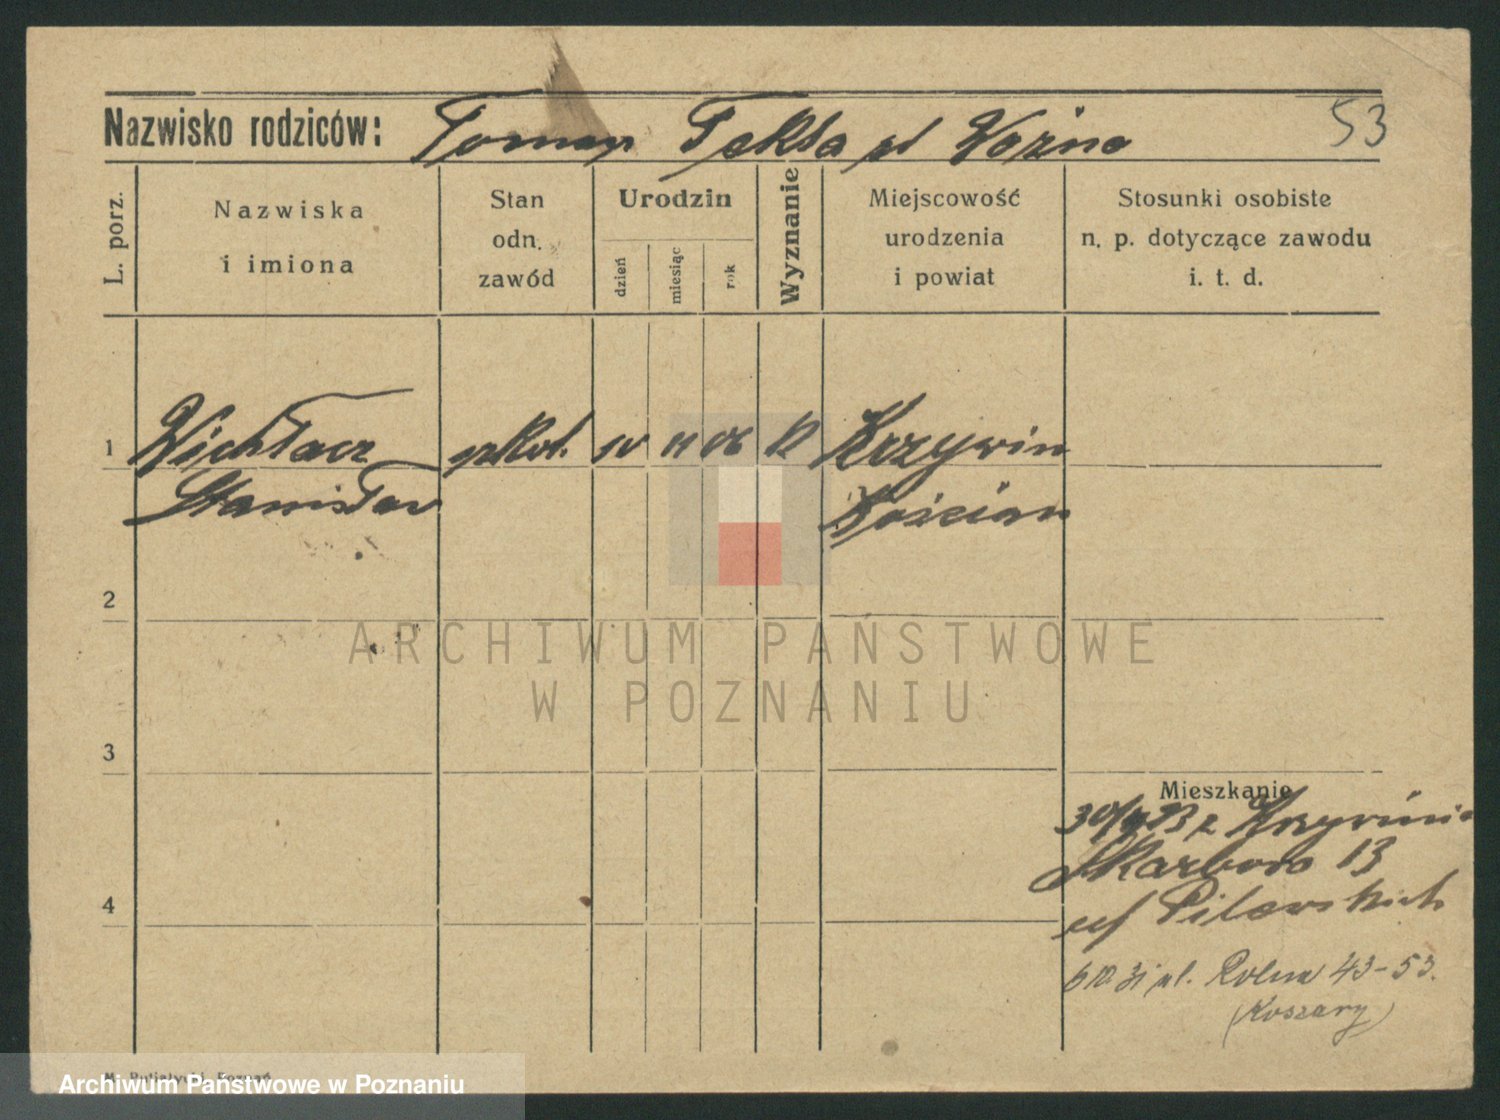 Nazwisko rodziców: Tomasz Tekla zd Woźna
53
L. porz.
Nazwiska
i imiona
Stan
odn.
zawód
Urodzin
dzień
miesiąc
rok
Wyznanie
Miejscowość
urodzenia
i powiat
Stosunki osobiste
n. p. dotyczące zawodu
i. t. d.
1 Wichłacz 11 06 Krzywin
Stanisław Kościan
2
3
4
Mieszkanie
z Krzywinia
Skarbowa 13
Pilawskich
31 ul. Rolna 43-53.
(Koszary)
ARCHIWUM PAŃSTWOWE
W POZNANIU
Archiwum Państwowe w Poznaniu